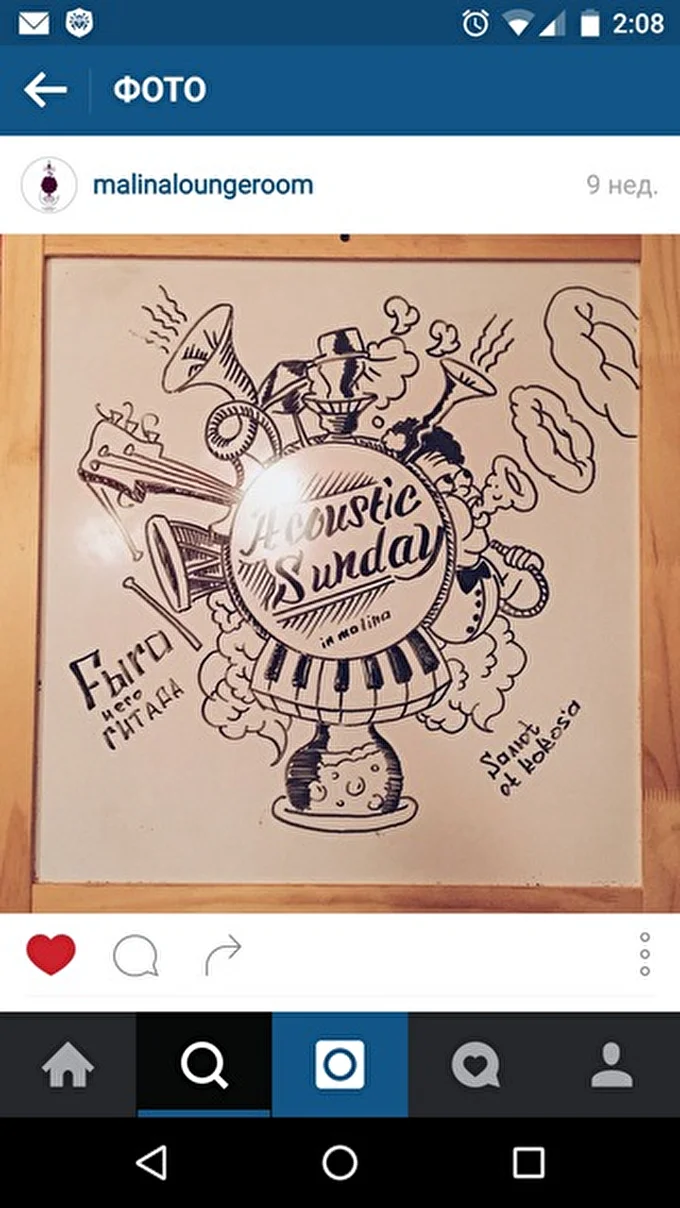 2:08
ФОТО
malinaloungeroom
9 нед.
Acoustic
Sunday
in malina
Fыго
него
ГИТАРА
Salиot
ot kokos'a